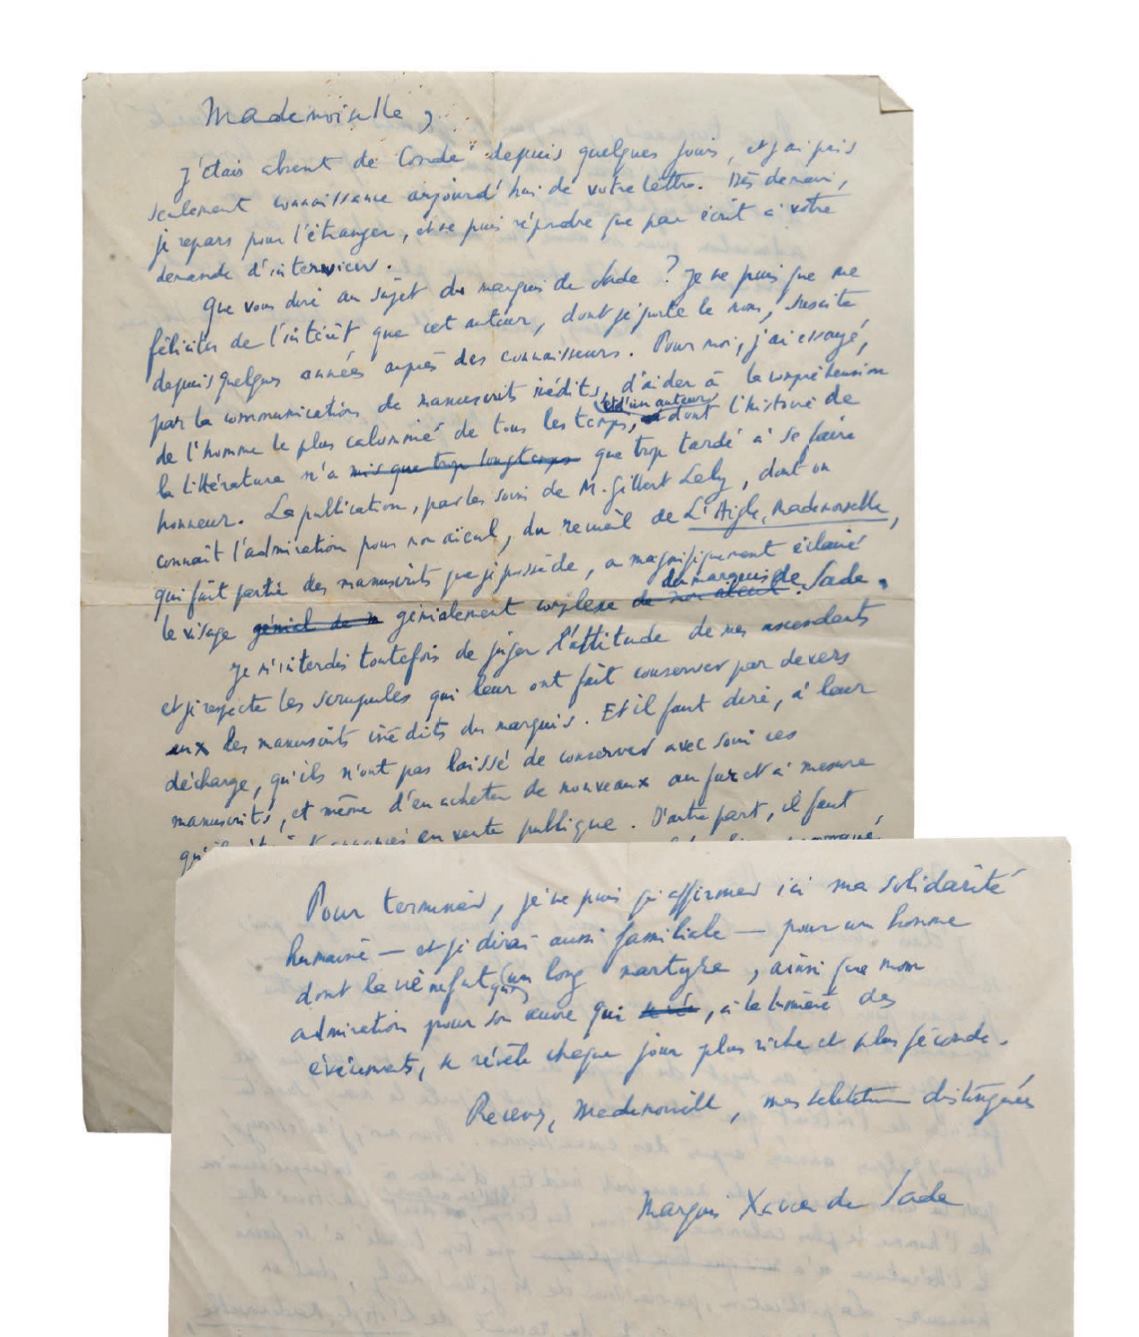 Mademoiselle,
J'étais absent de Condé depuis quelques jours, et j'ai pris
seulement connaissance aujourd'hui de votre lettre. Dès demain,
je repars pour l'étranger, et ne puis répondre que par écrit à votre
demande d'interview.
Que vous dire au sujet du marquis de Sade ? Je ne puis que me
féliciter de l'intérêt que cet auteur, dont je porte le nom, suscite
depuis quelques années auprès des connaisseurs. Pour moi, j'ai essayé,
par la communication de manuscrits inédits, d'aider à la compréhension
de l'homme le plus calomnié de tous les temps, et d'un auteur dont l'histoire de
la littérature n'a mis que trop longtemps que trop tardé à se faire
honneur. La publication, par les soins de M. Gilbert Lely, dont on
connaît l'admiration pour mon aïeul, du recueil de L'Aigle, Mademoiselle,
qui fait partie des manuscrits que je possède, a magnifiquement éclairé
le visage génial de m génialement complexe de mon aïeul du marquis de Sade.
Je m'interdis toutefois de juger l'attitude de mes ascendants
et je respecte les scrupules qui leur ont fait conserver par devers
eux les manuscrits inédits du marquis. Et il faut dire, à leur
décharge, qu'ils n'ont pas laissé de conserver avec soin ces
manuscrits, et même d'en acheter de nouveaux au fur et à mesure
en vente publique. D'autre part, il faut
Pour terminer, je ne puis qu'affirmer ici ma solidarité
humaine — et je dirai aussi familiale — pour un homme
dont la vie ne fut qu'un long martyre, ainsi que mon
admiration pour son œuvre qui, à la lumière des
événements, se révèle chaque jour plus riche et plus féconde.
Recevez, Mademoiselle, mes salutations distinguées
Marquis Xavier de Sade